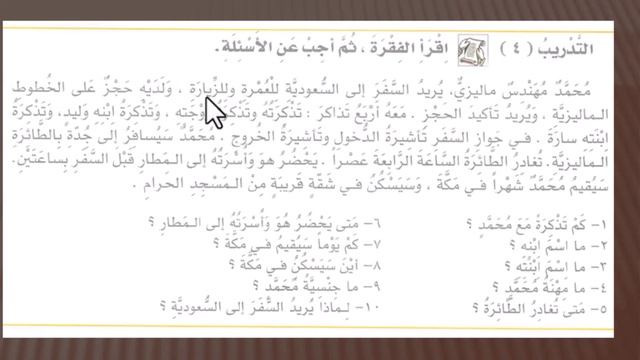 التَّدْرِيبُ ( ٤ ) اِقْرَأ الفِقْرَةَ ، ثُمَّ أجِبْ عَنِ الأَسْئِلَةِ.
مُحَمَّدٌ مُهَنْدِسٌ ماليزِيٌّ، يُرِيدُ السَّفَرَ إلى السُّعودِيَّةِ لِلْعُمْرَةِ ولِلزِّيارَةِ ، ولَدَيْهِ حَجْزٌ على الخُطوطِ
الـماليزِيَّةِ ، ويُرِيدُ تَأكيدَ الحجْزِ . مَعَهُ أَرْبَعُ تَذاكرَ : تَذْكَرَتُهُ وتَذْكَرَةُ زَوْجَتِه ، وتَذْكَرَةُ ابْنِهِ وَليد، وتَذْكَرَةُ
ابْنَتِه سارَةَ . فـي جَوازِ السَّفَرِ تَأشيرَةُ الدُّخولِ وتَأشيرَةُ الخُروجِ . مُحَمَّدٌ سَيُسافِرُ إلى جُدّةَ بِالطائرَةِ
الـماليزِيَّةِ. تغادِرُ الطَّائِرَةُ السَّاعَةَ الرَّابِعَةَ عَصْراً . يَحْضُرُ هوَ وَأُسْرَتُهُ إلى الـمَطارِ قَبْلَ السَّفَرِ بِساعَتَيْنِ.
سَيُقيمُ مُحَمَّدٌ شَهْراً فـي مَكَّةَ ، وَسَيَسْكُنُ فـي شَقَّةٍ قَريبَةٍ مِنْ الـمَسْجِدِ الحَرامِ .
١- كَمْ تَذْكَرَةً مَعَ مُحَمَّدٍ ؟
٢- ما اسْمُ ابْنِهِ ؟
٣- ما اسْمُ ابْنَتِهِ ؟
٤- ما مِهْنَةُ مُحَمَّدٍ ؟
٥- مَتَى تُغادِرُ الطَّائِرَةُ ؟
٦- مَتى يَحْضُرُ هُوَ وَأُسْرَتُهُ إلى الـمَطارِ ؟
٧- كَمْ يَوْماً سَيُقيمُ فـي مَكَّةَ ؟
٨- أيْنَ سَيَسْكُنُ فـي مَكَّةَ ؟
٩- ما جِنْسِيَّةُ مُحَمَّدٍ ؟
١٠- لِـماذا يُرِيدُ السَّفَرَ إلى السُّعودِيَّةِ ؟